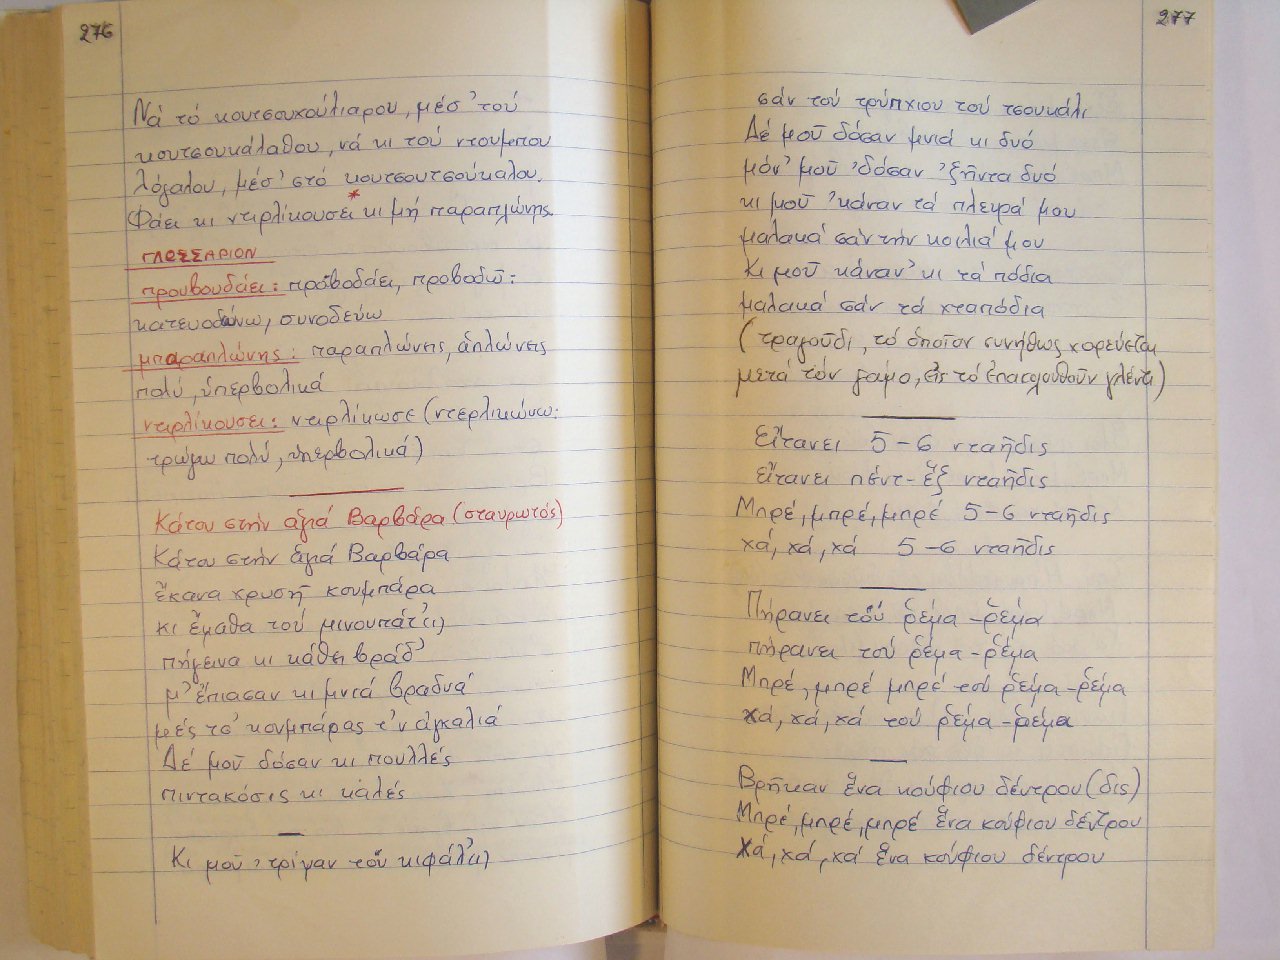 276
Νά τό κουτσουχούλιαρου, μέσ' τού
κουτσουκάλαθου, νά κι τού ντουμπου
λόγαλου, μέσ' στό κουτσουτσούκαλου.
Φάει κι νταρλίκουσει * κι μή παραπλώνης.
ΓΛΩΣΣΑΡΙΟΝ
προυβουδάει: προβοδάει, προβοδῶ:
κατευοδώνω, συνοδεύω
μπαραπλώνης: παραπλώνης, ἁπλώνεις
πολύ, ὑπερβολικά
νταρλίκουσει: νταρλίκωσε (ντερλικώνω:
τρώγω πολύ, ὑπερβολικά)
Κάτου στήν ἁγιά Βαρβάρα (σταυρωτός)
Κάτου στήν ἁγιά Βαρβάρα
ἔκανα χρυσῆ κουμπάρα
κι ἔμαθα τού μινουπάτ'(ι)
πήγεινα κι κάθι βράδ'
μ' ἔπιασαν κι μνιά βραδυά
μές τσ' κουμπάρας τ'ν ἀγκαλιά
Δέ μοῦ δόσαν κι πουλλές
πιντακόσις κι καλές
Κι μοῦ 'τρίψαν τού κιφάλ'(ι)
277
σάν τού τρύπχιου τού τσουκάλι
Δέ μοῦ δόσαν μνιά κι δυό
μόν' μοῦ 'δόσαν 'ξῆντα δυό
κι μοῦ 'κάναν τά πλευρά μου
μαλακά σάν τήν κοιλιά μου
Κι μοῦ κάναν' κι τά πόδια
μαλακά σάν τά χταπόδια
(τραγοῦδι, τό ὁποῖον συνήθως χορεύεται
μετά τόν γάμο, εἰς τό ἐπακολουθοῦν γλέντι)
Εἴτανει 5-6 νταῆδις
εἴτανει πέντ-ἕξ νταῆδις
Μπρέ, μπρέ, μπρέ 5-6 νταῆδις
χά, χά, χά 5-6 νταῆδις
Πήρανει τού ρέμα-ρέμα
πήρανει τού ρέμα-ρέμα
Μπρέ, μπρέ μπρέ τού ρέμα-ρέμα
χά, χά, χά τού ρέμα-ρέμα
Βρῆκαν ἕνα κούφιου δέντρου (δις)
Μπρέ, μπρέ, μπρέ ἕνα κούφιου δέντρου
Χά, χά, χά ἕνα κούφιου δέντρου